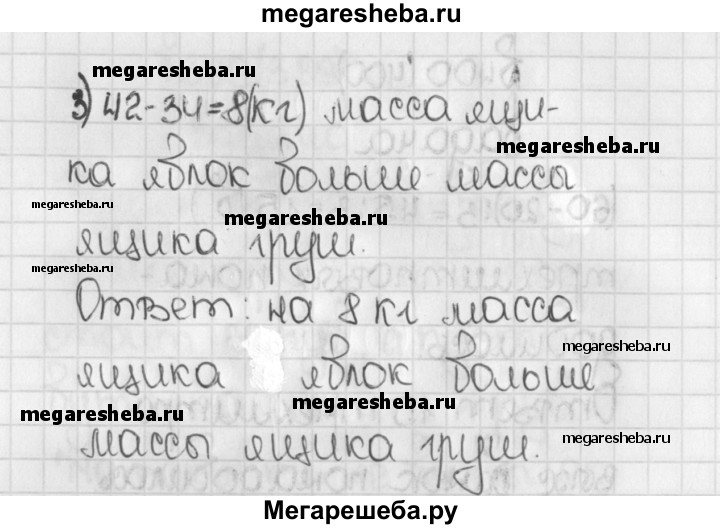 megaresheba.ru
megaresheba.ru
3) 42-34=8(кг) масса ящи-
megaresheba.ru
ка яблок больше массы
megaresheba.ru
megaresheba.ru
ящика груш.
megaresheba.ru
Ответ: на 8 кг масса
megaresheba.ru
ящика яблок больше
megaresheba.ru
megaresheba.ru
массы ящика груш.
megaresheba.ru
Мегарешеба.ру